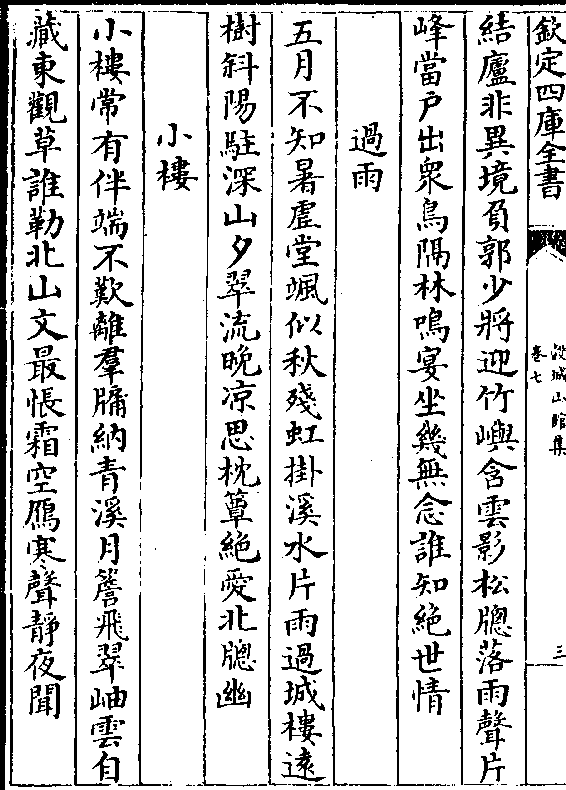 欽定四庫全書
穀城山館集
卷七
三
結廬非異境負郭少將迎竹嶼含雲影松牕落雨聲片
峰當戶出衆鳥隔林鳴宴坐幾無念誰知絶世情
過雨
五月不知暑虛堂颯似秋殘虹掛溪水片雨過城樓遠
樹斜陽駐深山夕翠流晚凉思枕簟絶愛北牕幽
小樓
小樓常有伴端不歎離羣牖納青溪月簷飛翠岫雲自
藏東觀草誰勒北山文最悵霜空鴈寒聲靜夜聞